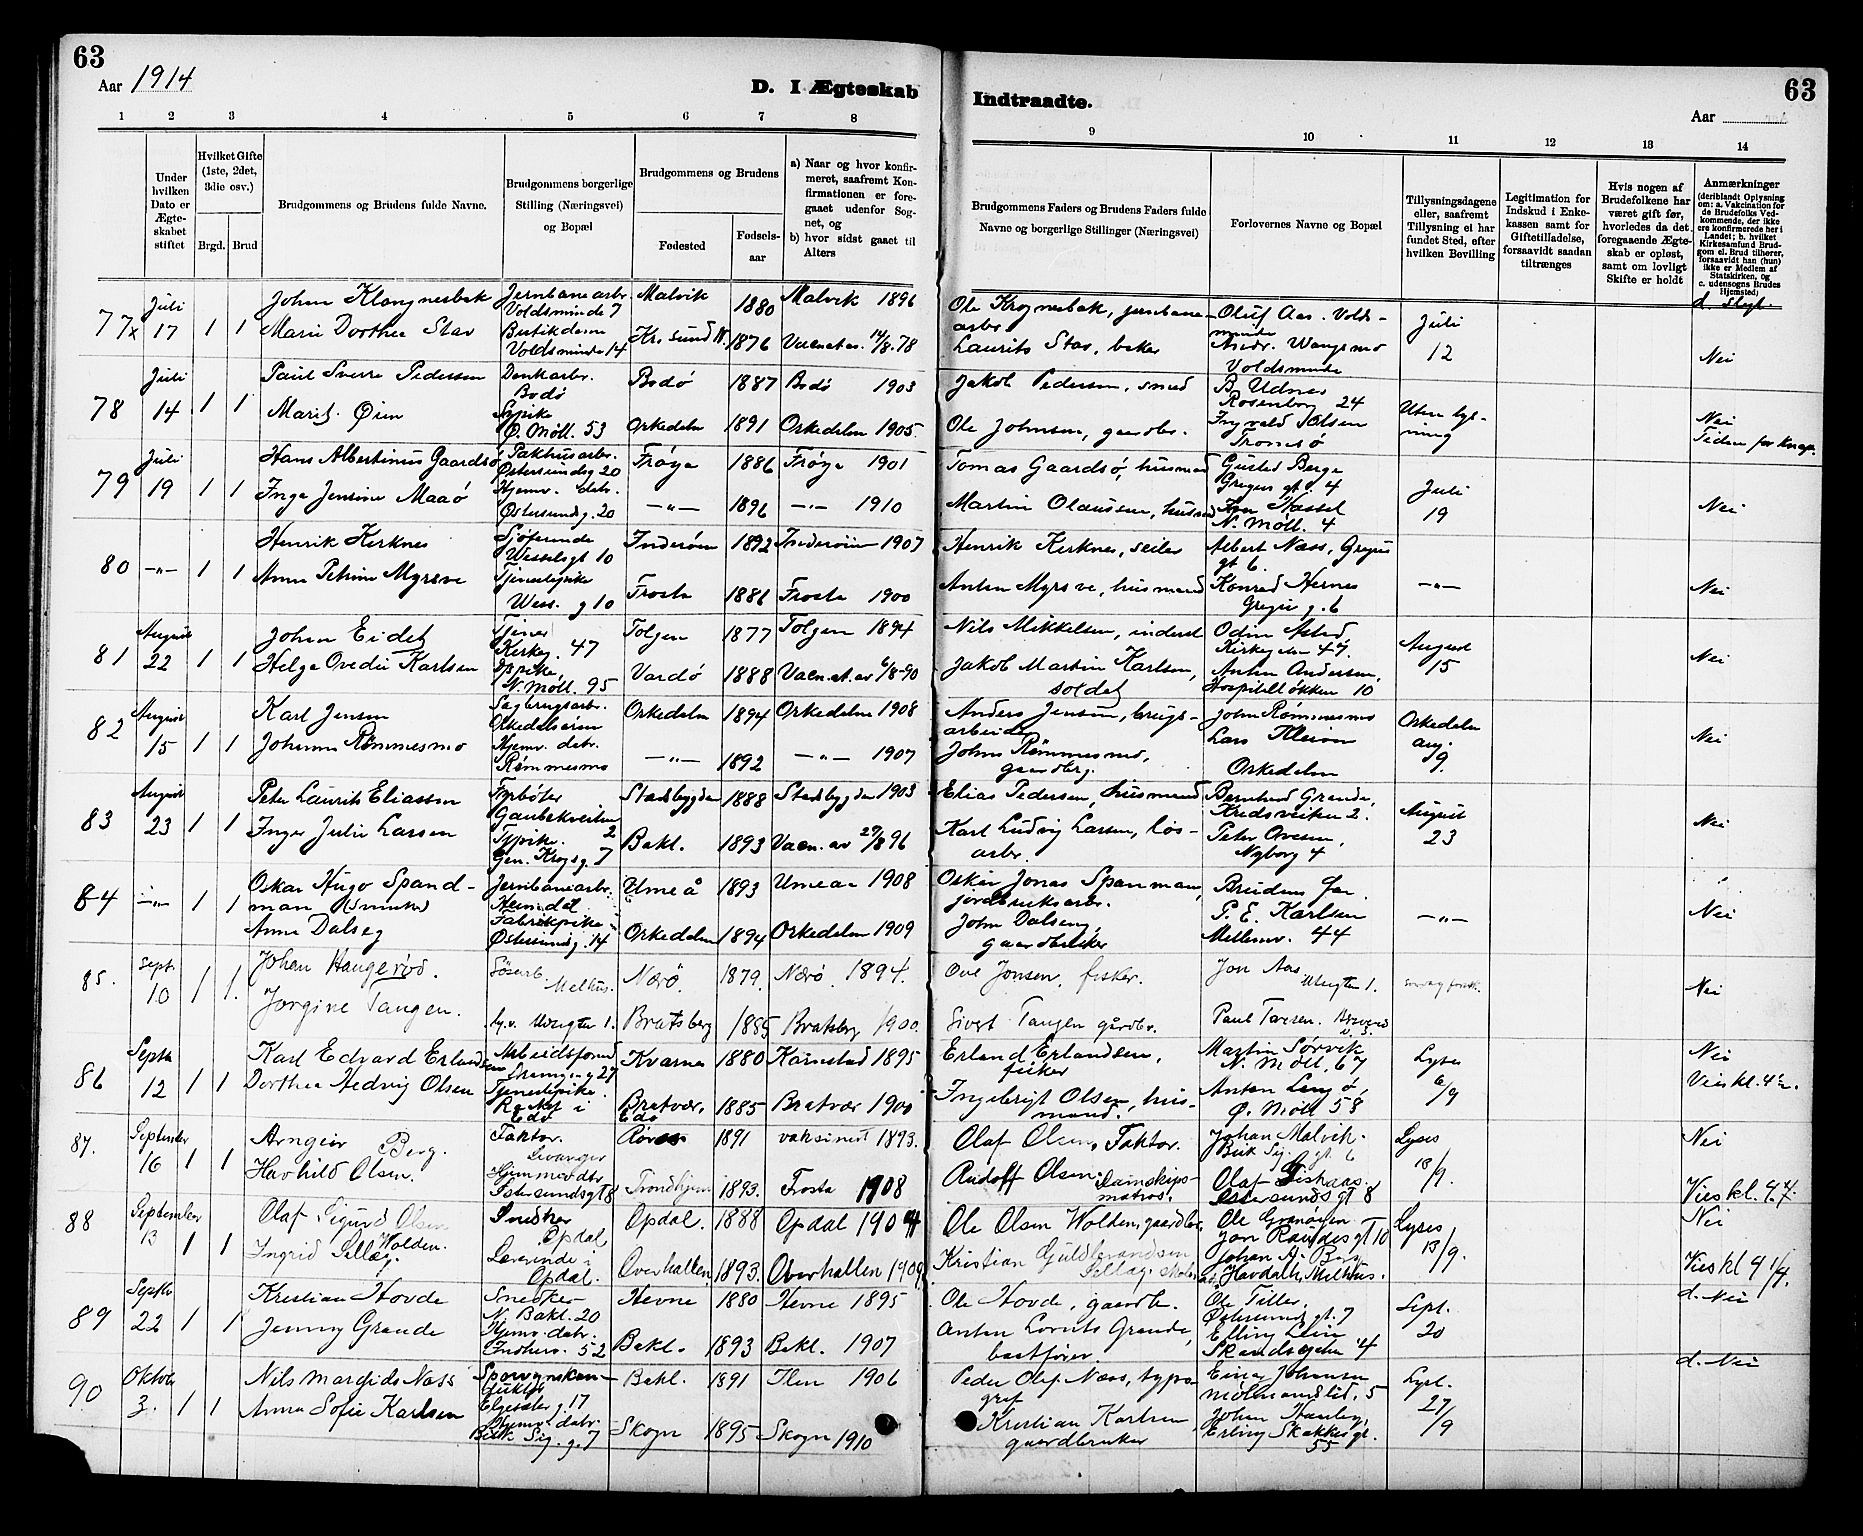 63
Aar 1914
D. I Ægteskab
Indtraadte.
63
Aar
1 2 3 4 5 6 7 8 9 10 11 12 13 14
Under hvilken Dato er Ægteskabet stiftet
Hvilket Gifte (1ste, 2det, 3die osv.)
Brgd. Brud
Brudgommens og Brudens fulde Navne.
Brudgommens borgerlige Stilling (Næringsvei) og Bopæl
Brudgommens og Brudens
Fødested
Fødsels-aar
a) Naar og hvor konfirmeret, saafremt Konfirmationen er foregaaet udenfor Sognet, og
b) hvor sidst gaaet til Alters
Brudgommens Faders og Brudens Faders fulde Navne og borgerlige Stillinger (Næringsvei)
Forlovernes Navne og Bopæl
Tillysningsdagene eller, saafremt Tillysning ei har fundet Sted, efter hvilken Bevilling
Legitimation for Indskud i Enkekassen samt for Giftetilladelse, forsaavidt saadan tiltrænges
Hvis nogen af Brudefolkene har været gift før, hvorledes da det foregaaende Ægteskab er opløst, samt om lovligt Skifte er holdt
Anmærkninger (deriblandt Oplysning om: a. Vakcination for de Brudefolks Vedkommende, der ikke ere konfirmerede her i Landet; b. hvilket Kirkesamfund Brudgom el. Brud tilhører, forsaavidt han (hun) ikke er Medlem af Statskirken, og c. udensogns Brudes Hjemsted;
d. Slegt.
77x Juli 17 1 1 Johan Jernbanearb. Voldsminde 7 Malvik 1880 Malvik 1896 Ole jernbane-arb. Oluf Aas. Voldsminde Juli 12
Marie Dorthea Stav Butikdame Voldsminde 14 Kr.sund N. 1876 14/8.78 Laurits Stav, baker Andr. Wangsmo Voldsminde Nei
78 Juli 14 1 1 Paul Sverre Pedersen Bodø Bodø 1887 Bodø 1903 Jakob Pedersen, smed B. Udnes Rosenborg 24 Uten lysning
Marit Øien Sypike Ø. Möll. 53 Orkedalen 1891 Orkedalen 1905. Ole Johnsen, gaardbr. Ingvald Olsen Tromsø Nei
79 Juli 19 1 1 Hans Albertinius Gaardsø Pakhusarb. Østersundsg 20 Frøya 1886 Frøya 1901 Tomas Gaardsø, husmand Gustav Berge gt. 4 Juli 19
Inga Jensine Maaø Hjemv. datr. Østersundsg. 20 —„— 1896 —„— 1910 Martin Olaussen, husmand Hassel N. Möll. 4 Nei
80 —„— 1 1 Henrik Kirknes Sjøfarende Wesselsgt 10 Inderøen 1892 Inderøien 1907 Henrik Kirknes, seiler Albert Næss, gt 6. —„—
Anna Petrine Myrsve Tjenestepike Wess. g 10 Frosta 1886 Frosta 1900 Anton Myrsve, husmand Konrad Hernes g. 6 Nei
81 August 22 1 1 Johan Eidet Tjener Kirkeg. 47 Tolgen 1877 Tolgen 1894 Nils Mikkelsen, inderst Odin Kirkeg. 47. August 15
Helga Ovedie Karlsen Sypike, N. Möll. 95 Vardø 1888 6/8-90 Jakob Martin Karlsen, soldat Anton Andersen, Hospitalsløkken 10 Nei
82 August 15 1 1 Karl Jensen Sagbrugsarb. Orkedalsøren Orkedalen 1894 Orkedalen 1908 Anders Jensen, brugsarbeider John Rømmesmo Orkedalen aug. 9.
Johanna Rømmesmo Hjemv. datr. Rømmesmo —„— 1892 —„— 1907 John Rømmesmo, gaardbrg. Lars Kleven Orkedalen Nei
83 August 23 1 1 Peter Laurits Eliassen Fyrbøter Gaubekveiten 2 Stadsbygden 1888 Stadsbygden 1903 Elias Pedersen, husmand Bernhard Grande, 2. August 23
Inger Julie Larsen Sypike. Gen. Krogsg. 7 Bakl. 1893 Vacn. av 29/8 96 Karl Ludvig Larsen, løsarb. Peter Ovesen, Nyborg 4 Nei
84 —„— 1 1 Oskar Hugo Spandman Jernbanearb. Heimdal Umeå 1893 Umeaa 1908 Oskar Jonas Spanman, jordbruksarb. Brudens far —„—
Anna Dalseg Fabrikpike Østersundsg. 14 Orkedalen 1894 Orkedalen 1909 John Dalseng, gaardbruker P. E. Karlsen Mellemv. 44 Nei
85. Sept. 10 1 1. Johan Haugerød. Melhus. Nærø. 1879. Nærø. 1894. Ove Jonsen, fisker. Jon Aas 1.
Jorgine Tangen. 1. Bratsberg 1885 Bratsberg 1900. Sivert Tangen gårdbr. Paul Nei
86 Septbr 12 1 1 Karl Edvard Erlandsen Arbeidsformd 27 Kvernes 1880 1895 Erland Erlandsen, fisker Martin Sørvik N. Möll. 67 Lyses 6/9 Nei
Dorthea Hedvig Olsen Tjenestepike. i Edø Bratvær, Edø 1885 Bratvær 1900 Ingebrigt Olsen, husmand. Anton Ø. Möll 58
87. September 16 1 1 Arngeir Berg. Faktor. Levanger Røros 1891 vaksinert 1893. Olaf Olsen, Faktor. Johan Malvik. gt 6 Lyses 13/9. Nei
Havhild Olsen. Hjemmevdtr. Østersundsgt 8 Trondhjem 1893. Frosta 1908 Rudolf Olsen Damskipsmatros. Olaf Østersunds gt 8
88 September 13 1 1 Olaf Sigurd Olsen Wolden. Snedker Opdal Opdal. 1888 Opdal 1904 Ole Olsen Wolden, gaardbr. Ole Lyses 13/9. Nei
Ingrid Sellæg. Lærerinde i Opdal. Overhallen 1893. Overhallen 1909 Kristian Guldbrandsen Sellæg. Johan A. Berg
89 Septbr 22 1 1 Kristian Hovde Snedker N. Bakl. 20 Hevne 1880 Hevne 1895 Ole Hovde, gaardb. Ole Tiller, Østersund gt. 7 Sept. 20 d. Nei
Jenny Grande Hjemv. datr. Indherv. 52 Bakl. 1893 Bakl. 1907 Anton Lorents Grande, baatfører. Elling Lein
90 Oktober 3. 1 1 Nils Margido Næss Elgesæter g. 17 Bakl. 1891 Ilen 1906 Peder Olaf Næss, typograf Einar Johansen 5 Lyst. 27/9 d. Nei
Anna Sofie Karlsen Hjemv. datr. Bisk. Sig. g. 7 Skogn 1895 Skogn 1910 Kristian Karlsen gaardbruker Johan Erling Skakkes gt. 55